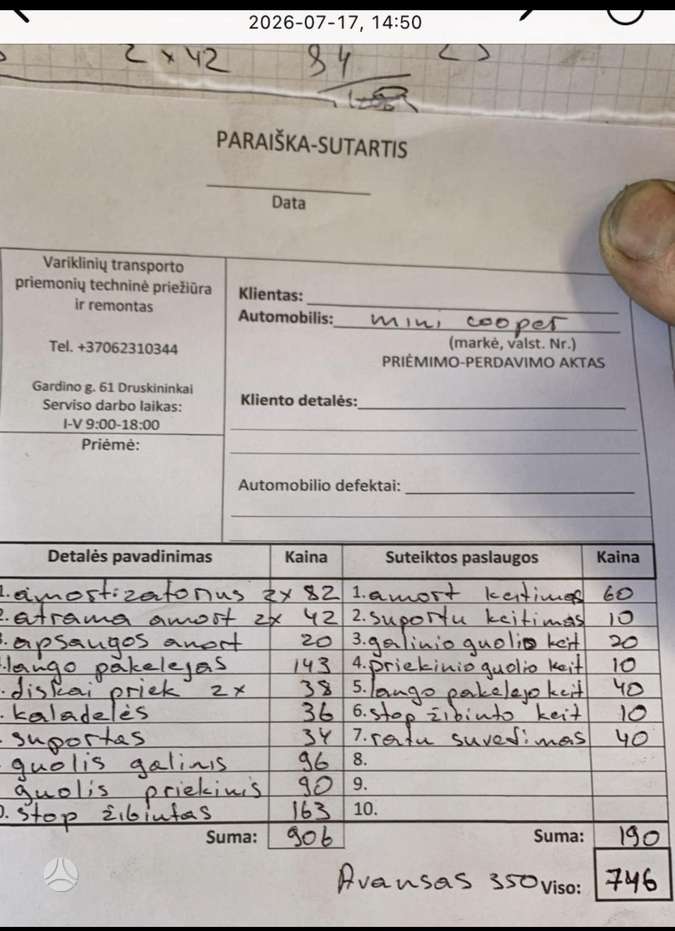 2026-07-17, 14:50
2 x 42 84
PARAIŠKA-SUTARTIS
Data
Variklinių transporto
priemonių techninė priežiūra
ir remontas
Tel. +37062310344
Gardino g. 61 Druskininkai
Serviso darbo laikas:
I-V 9:00-18:00
Priėmė:
Klientas:
Automobilis: mini cooper
(markė, valst. Nr.)
PRIĖMIMO-PERDAVIMO AKTAS
Kliento detalės:
Automobilio defektai:
Detalės pavadinimas Kaina Suteiktos paslaugos Kaina
1. amortizatorius 2x 82 1. amort keitimas 60
2. atrama amort 2x 42 2. suportu keitimas 10
. apsaugos amort 20 3. galinio guolio keit 20
. lango pakelejas 143 4. priekinio guolio keit 10
. diskai priek 2x 38 5. lango pakelejo keit 40
. kaladelės 36 6. stop žibinto keit 10
. suportas 34 7. ratu suvedimas 40
guolis galinis 96 8.
guolis priekinis 90 9.
0. stop žibintas 163 10.
Suma: 906 Suma: 190
Avansas 350 Viso: 746